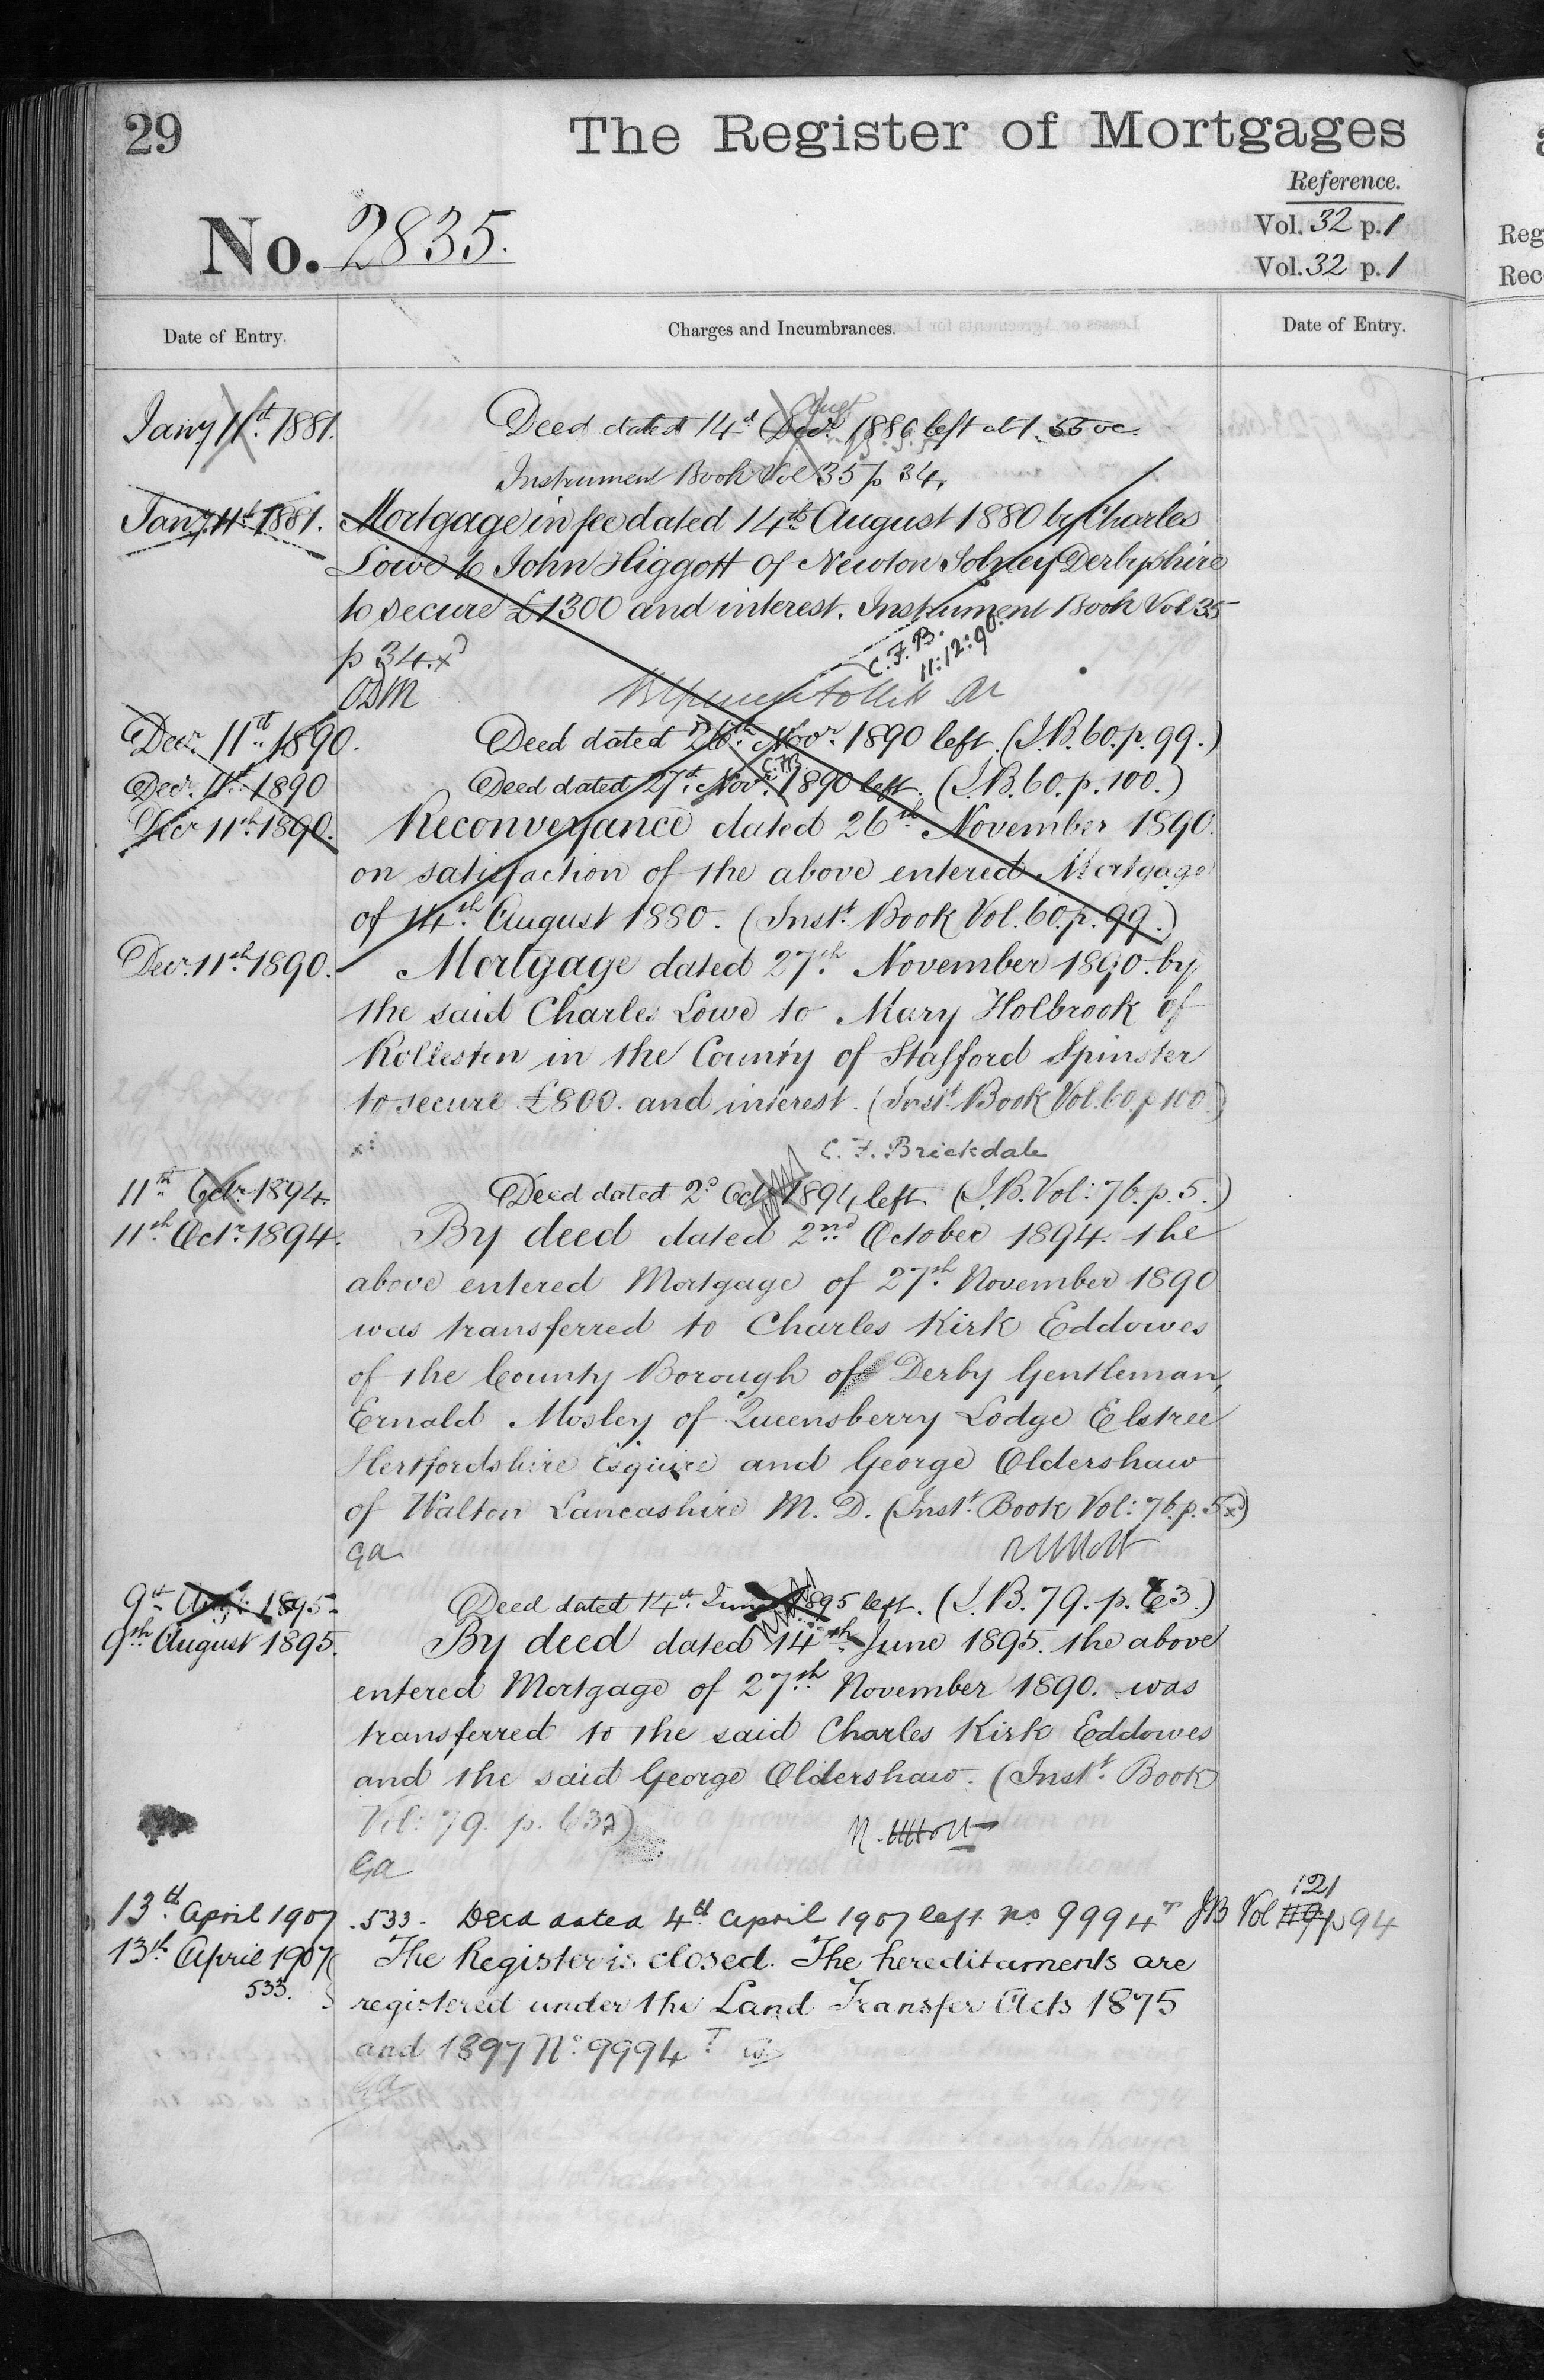 29
The Register of Mortgages
Reference.
No. 2835.
Vol. 32 p. 1
Vol. 32 p. 1
Date of Entry.
Charges and Incumbrances.
Date of Entry.
Jany 11th 1881. Deed dated 14th left at 1.55
Instrument Book Vol 35 p 34.
Jany 11th 1881. Mortgage in fee dated 14th August 1880 by Charles
Lowe to John Higgott of Newton Solney Derbyshire
to secure £1300 and interest. Instrument Book Vol 35
p 34.x
C.F.B.
11:12:90.
ODM
Decr. 11th 1890. Deed dated 26th Novr. 1890 left. (I.B. 60. p. 99.)
C.F.B.
Decr. 11th 1890 Deed dated 27th Novr. 1890 left. (I.B. 60. p. 100.)
Decr 11th 1890. Reconveyance dated 26th November 1890.
on satisfaction of the above entered Mortgage
of 14th August 1880. (Inst. Book Vol. 60. p. 99.)
Decr. 11th 1890. Mortgage dated 27th November 1890. by
the said Charles Lowe to Mary Holbrook of
Rolleston in the County of Stafford Spinster
to secure £800. and interest. (Inst. Book Vol. 60. p 100.)
x: C. F. Brickdale
11th Octr. 1894. Deed dated 2d Oct 1894 left. (I.B. Vol: 76. p. 5.)
11th Octr. 1894. By deed dated 2nd October 1894. the
above entered Mortgage of 27th November 1890
was transferred to Charles Kirk Eddowes
of the County Borough of Derby Gentleman,
Ernald Mosley of Queensberry Lodge Elstree
Hertfordshire Esquire and George Oldershaw
of Walton Lancashire M. D. (Inst. Book Vol: 76. p. 5x)
Ga
9th Aug. 1895. Deed dated 14th June 1895 left. (I.B. 79. p. 63.)
9th August 1895. By deed dated 14th June 1895. the above
entered Mortgage of 27th November 1890. was
transferred to the said Charles Kirk Eddowes
and the said George Oldershaw. (Inst. Book
Vol: 79. p. 63x)
Ga
121
13th April 1907. 533 - Deed dated 4th April 1907 left no 9994 T IB Vol 119 p 94
13th April 1907 The Register is closed. The hereditaments are
533. registered under the Land Transfer Acts 1875
and 1897 No. 9994 T
Ga